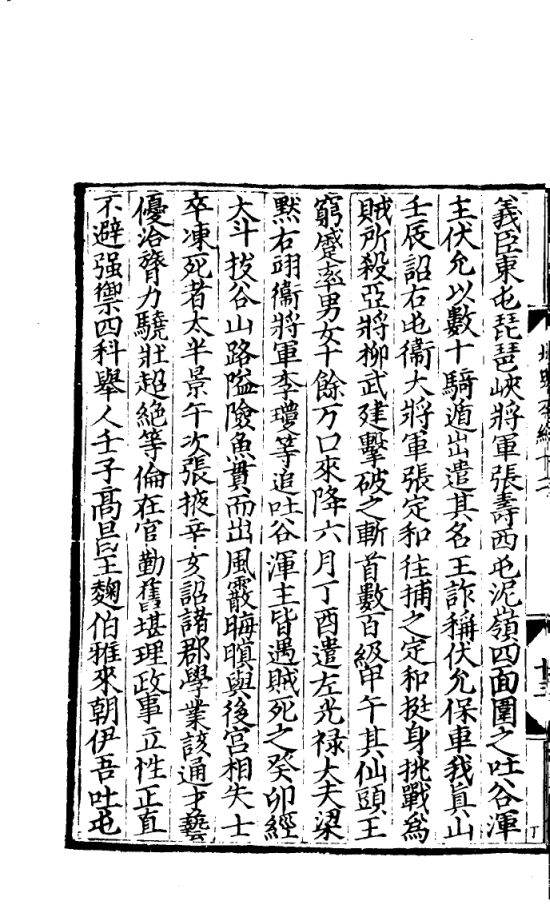 義臣東屯琵琶峽將軍張壽西屯泥嶺四面圍之吐谷渾
主伏允以數十騎遁出遣其名王詐稱伏允保車我真山
壬辰詔右屯衞大將軍張定和往捕之定和挺身挑戰爲
賊所殺亞將柳武建擊破之斬首數百級甲午其仙頭王
窮蹙率男女十餘万口來降六月丁酉遣左光禄大夫梁
默右翊衞將軍李瓊等追吐谷渾主皆遇賊死之癸卯經
大斗拔谷山路隘險魚貫而出風霰晦暝與後宫相失士
卒凍死者太半景午次張掖辛亥詔諸郡學業該通才藝
優洽膂力驍壯超絶等倫在官勤舊堪理政事立性正直
不避强禦四科舉人壬子髙昌王麴伯雅來朝伊吾吐屯
十三